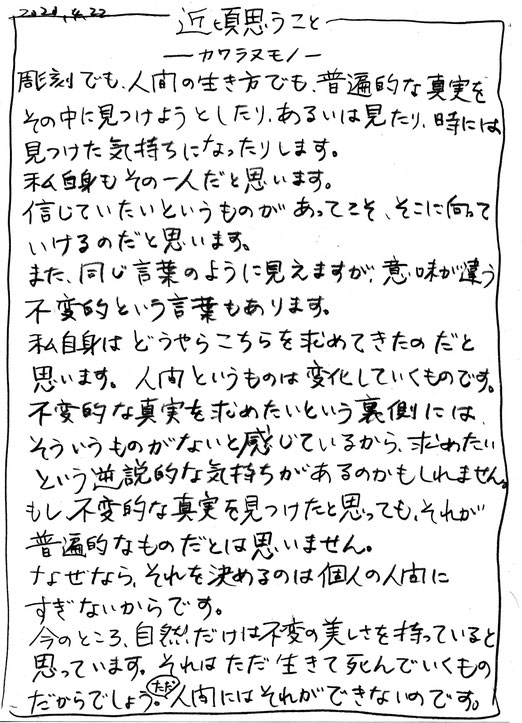 2020.4.22
近頃思うこと
—カワラヌモノ—
彫刻でも、人間の生き方でも、普遍的な真実を
その中に見つけようとしたり、あるいは見たり、時には
見つけた気持ちになったりします。
私自身もその一人だと思います。
信じていたいというものがあってこそ、そこに向って
いけるのだと思います。
また、同じ言葉のように見えますが、意味が違う
不変的という言葉もあります。
私自身はどうやらこちらを求めてきたのだと
思います。人間というものは変化していくものです。
不変的な真実を求めたいという裏側には、
そういうものがないと感じているから、求めたい
という逆説的な気持ちがあるのかもしれません。
もし、不変的な真実を見つけたと思っても、それが
普遍的なものだとは思いません。
なぜなら、それを決めるのは個人の人間に
すぎないからです。
今のところ、自然だけは不変の美しさを持っていると
思っています。それはただ生きて死んでいくもの
だからでしょう。ただ人間にはそれができないのです。